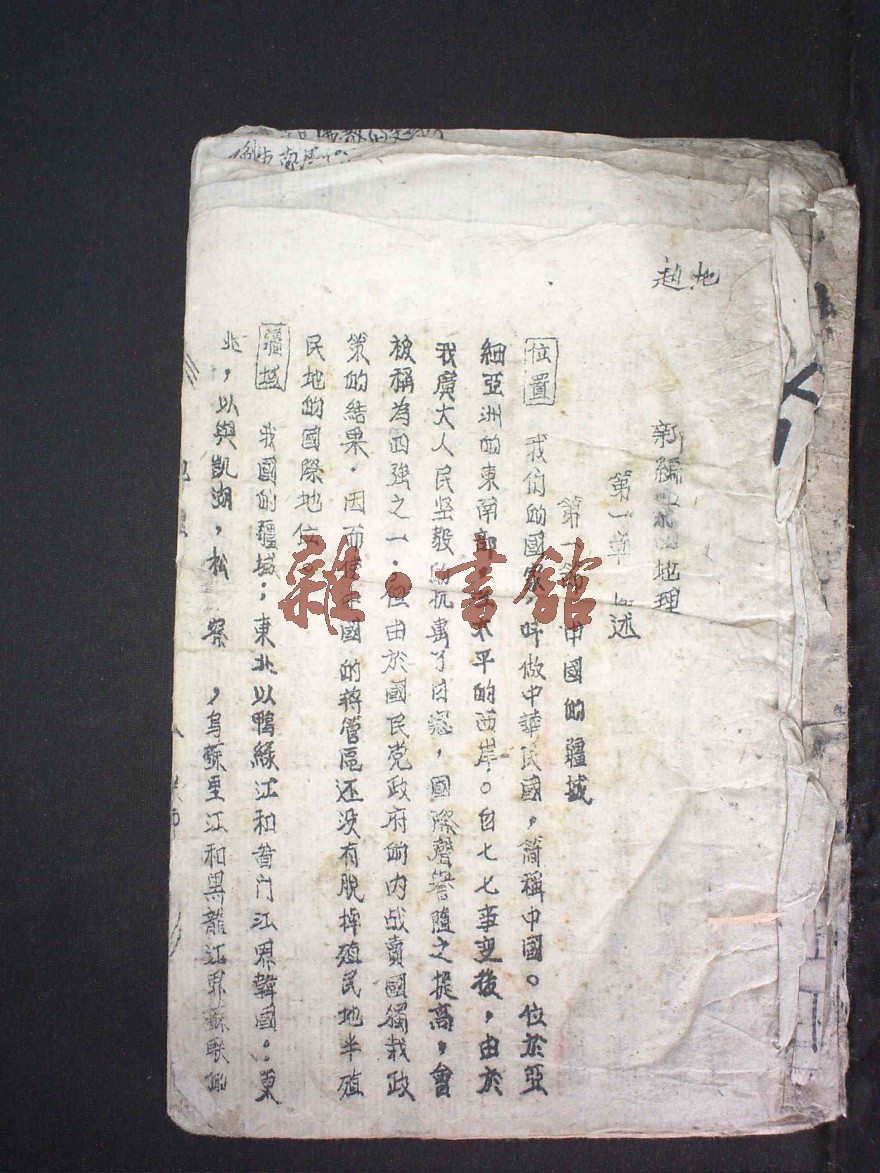 地
赵
新編 地理
第一章 述
第一 中國的疆域
位置 我们的國家,呌做中華民國,简稱中國。位於亞
細亞洲的東南部, 太平的西岸。自七七事变後,由於
我廣大人民坚毅的抗擊了日寇,國際聲譽隨之提高,曾
被稱為四强之一.但由於國民党政府的内战賣國獨裁政
策的結果.因而使中國的蒋管區还没有脱掉殖民地半殖
民地的國際地位。
疆域 我國的疆域:東北以鴨緑江和啚门江界韓國。東
北,以與凱湖,松 察 ,烏蘇里江和黑龍江界蘇联的
雜·書館